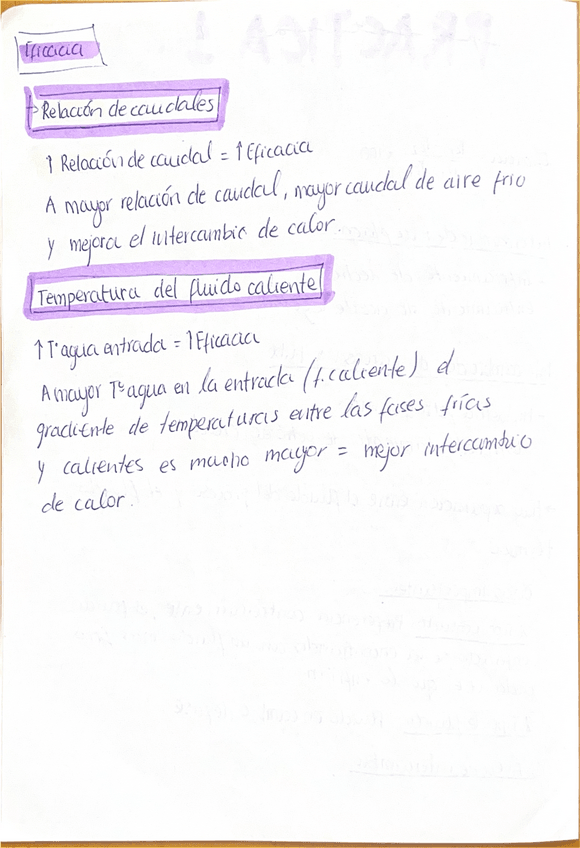 Eficacia
→ Relación de caudales
↑ Relación de caudal = ↑ Eficacia
A mayor relación de caudal, mayor caudal de aire frio
y mejora el intercambio de calor.
Temperatura del fluido caliente
↑ Tª agua entrada = ↑ Eficacia
A mayor Tª agua en la entrada (f. caliente) el
gradiente de temperaturas entre las fases frías
y calientes es mucho mayor = mejor intercambio
de calor.